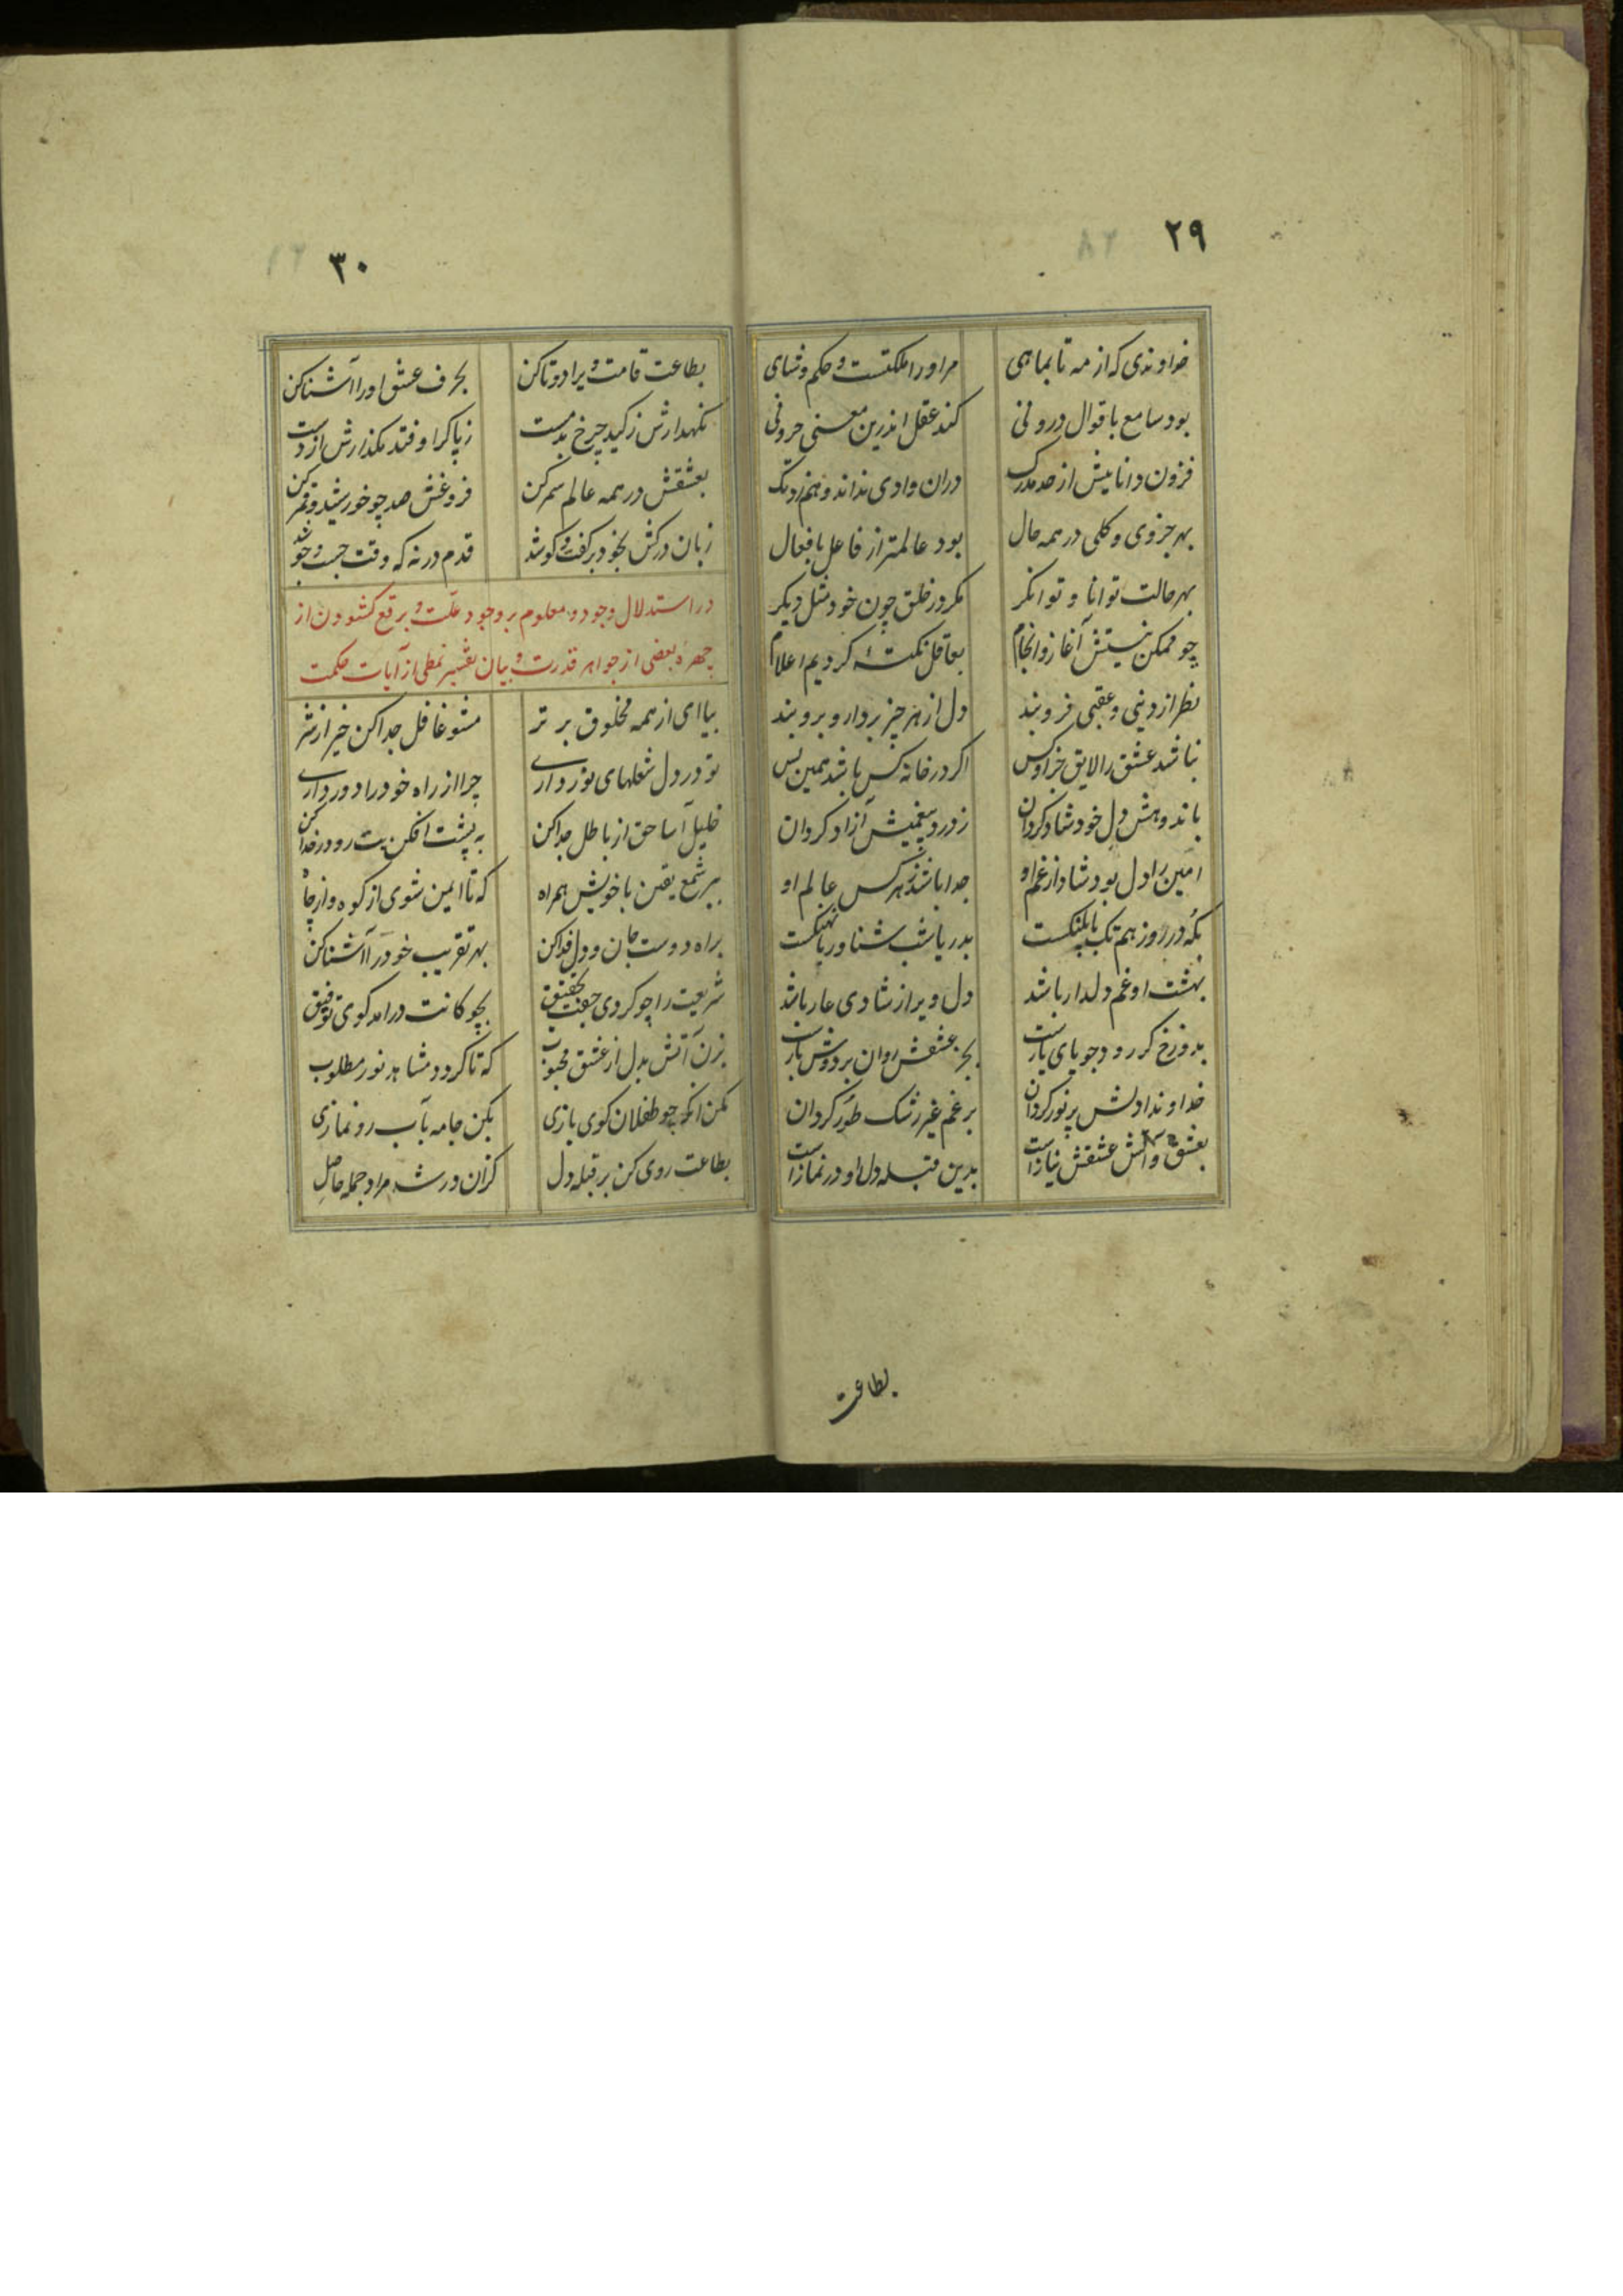 ٢٩
خداوندی که از مه تا بماهی مر او را ملکتست و حکم و شاهی
بود سامع باقوال درونی کند عقل اندرین معنی حرونی
فزون دانائیش از حد مدرک دران وادی نداند وهم زد تک
بهر جزوی و کلی در همه حال بود عالمتر از فاعل بافعال
بهر حالت توانا و توانگر مگر در خلق چون خود مثل دیگر
چو ممکن نیستش آغاز و انجام بعاقل نکتهٔ کردیم اعلام
نظر از دینی و عقبی فرو بند دل از هر چیز بردار و برو بند
نباشد عشق را لایق خر اوکس اگر در خانه کس باشد همین بس
باندوهش دل خود شاد گردان ز درد بیغمیش آزاد گردان
امین را دل بود شاد از غم او جدا باشد ز هر کس عالم او
که در روز هم تک با پلنگست بدریا شب شناور با نهنگست
بهشت او غم دلدار باشد دل ویرا ز شادی عار باشد
بدوزخ گر رود جویای یارست بجر عشقش روان بر دوش بارست
خداوندا دلش پر نور گردان بر غم غیر رشک طور گردان
بعشق و آتش عشقش نیازست بدین قبله دل او در نمازست
بطاعت
٣٠
بطاعت قامت ویرا دوتا کن بحرف عشق او را آشنا کن
نگهدارش ز کید چرخ بدمست ز پا گر اوفتد مگذارش از دست
بعشقش در همه عالم سمر کن فروغش صد چو خورشید و قمر کن
زبان درکش بخود بر گفت و گو شد قدم در نه که وقت جست و جو شد
در استدلال وجود و معلوم بر وجود علّت و برقع گشودن از
چهرهٔ بعضی از جواهر قدرت و بیان تفسیر نمطی از آیات حکمت
بیا ای از همه مخلوق برتر مشو غافل جدا کن خیر از شر
تو در دل شعلهای نور داری چرا از راه خود را دور داری
خلیل آسا حق از باطل جدا کن به پشت افکن بت رو در خدا کن
ببر شمع یقین با خویش همراه که تا ایمن شوی از کوه و از چاه
براه دوست جان و دل فدا کن بهر تقریب خود را آشنا کن
شریعت را چو کردی جفت تحقیق بچوگانت درآمد گوی توفیق
بزن آتش بدل از عشق محبوب که تا گردد مشاهد نور مطلوب
مکن انکه چو طفلان گوی بازی بکن جامه بآب رو نمازی
بطاعت روی کن بر قبله دل کزان در شد مراد جمله حاصل